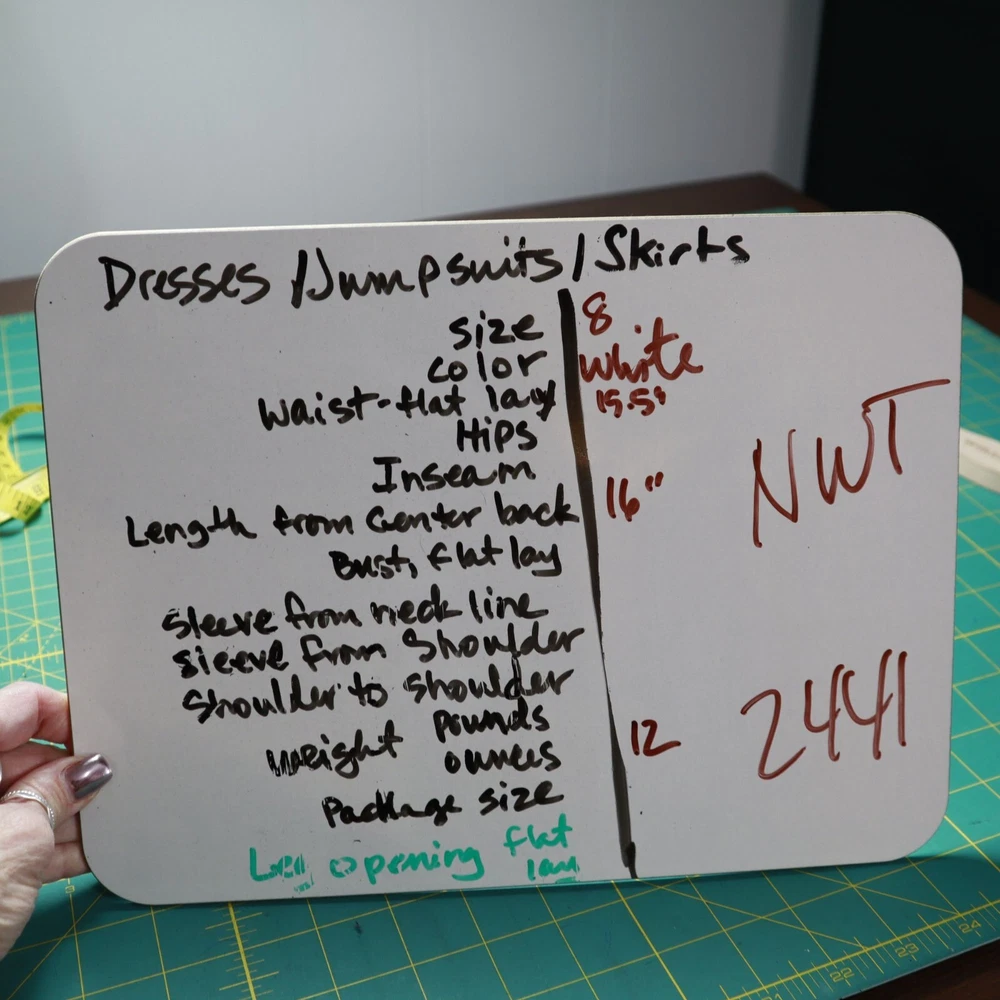 Dresses / Jumpsuits / Skirts
size 8
color white
waist-flat lay 15.5"
Hips
Inseam
Length from center back 16"
Bust, flat lay
Sleeve from neck line
Sleeve from Shoulder
Shoulder to shoulder
pounds
weight ounces 12
Package size
Leg opening flat lay
NWT
2441
22 23 24